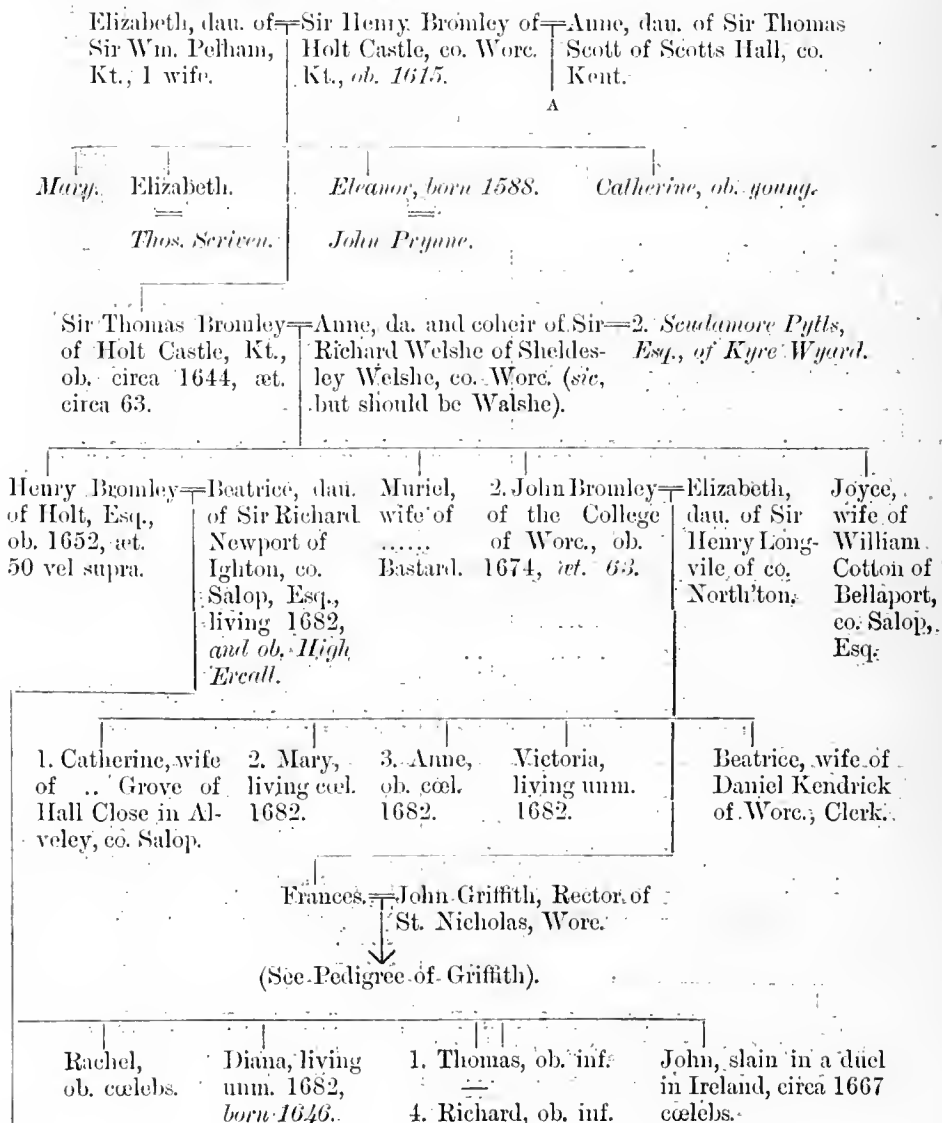 Elizabeth, dau. of
Sir Wm. Pelham,
Kt., 1 wife.
Sir Henry Bromley of
Holt Castle, co. Worc.
Kt., ob. 1615.
Anne, dau. of Sir Thomas
Scott of Scotts Hall, co.
Kent.
A
Mary.
Elizabeth.
Thos. Scriven.
Eleanor, born 1588.
John Prynne.
Catherine, ob. young.
Sir Thomas Bromley
of Holt Castle, Kt.,
ob. circa 1644, æt.
circa 63.
Anne, da. and coheir of Sir
Richard Welshe of Sheldes-
ley Welshe, co. Worc. (sic,
but should be Walshe).
2. Scudamore Pytts,
Esq., of Kyre Wyard.
Henry Bromley
of Holt, Esq.,
ob. 1652, æt.
50 vel supra.
Beatrice, dau.
of Sir Richard
Newport of
Ighton, co.
Salop, Esq.,
living 1682,
and ob. High
Ercall.
Muriel,
wife of
......
Bastard.
2. John Bromley
of the College
of Worc., ob.
1674, æt. 63.
Elizabeth,
dau. of Sir
Henry Long-
vile of co.
North'ton.
Joyce,
wife of
William
Cotton of
Bellaport,
co. Salop,
Esq.
1. Catherine, wife
of .. Grove of
Hall Close in Al-
veley, co. Salop.
2. Mary,
living cœl.
1682.
3. Anne,
ob. cœl.
1682.
Victoria,
living unm.
1682.
Beatrice, wife of
Daniel Kendrick
of Worc., Clerk.
Frances.
John Griffith, Rector of
St. Nicholas, Worc.
(See Pedigree of Griffith).
Rachel,
ob. cœlebs.
Diana, living
unm. 1682,
born 1646.
1. Thomas, ob. inf.
4. Richard, ob. inf.
John, slain in a duel
in Ireland, circa 1667
cœlebs.